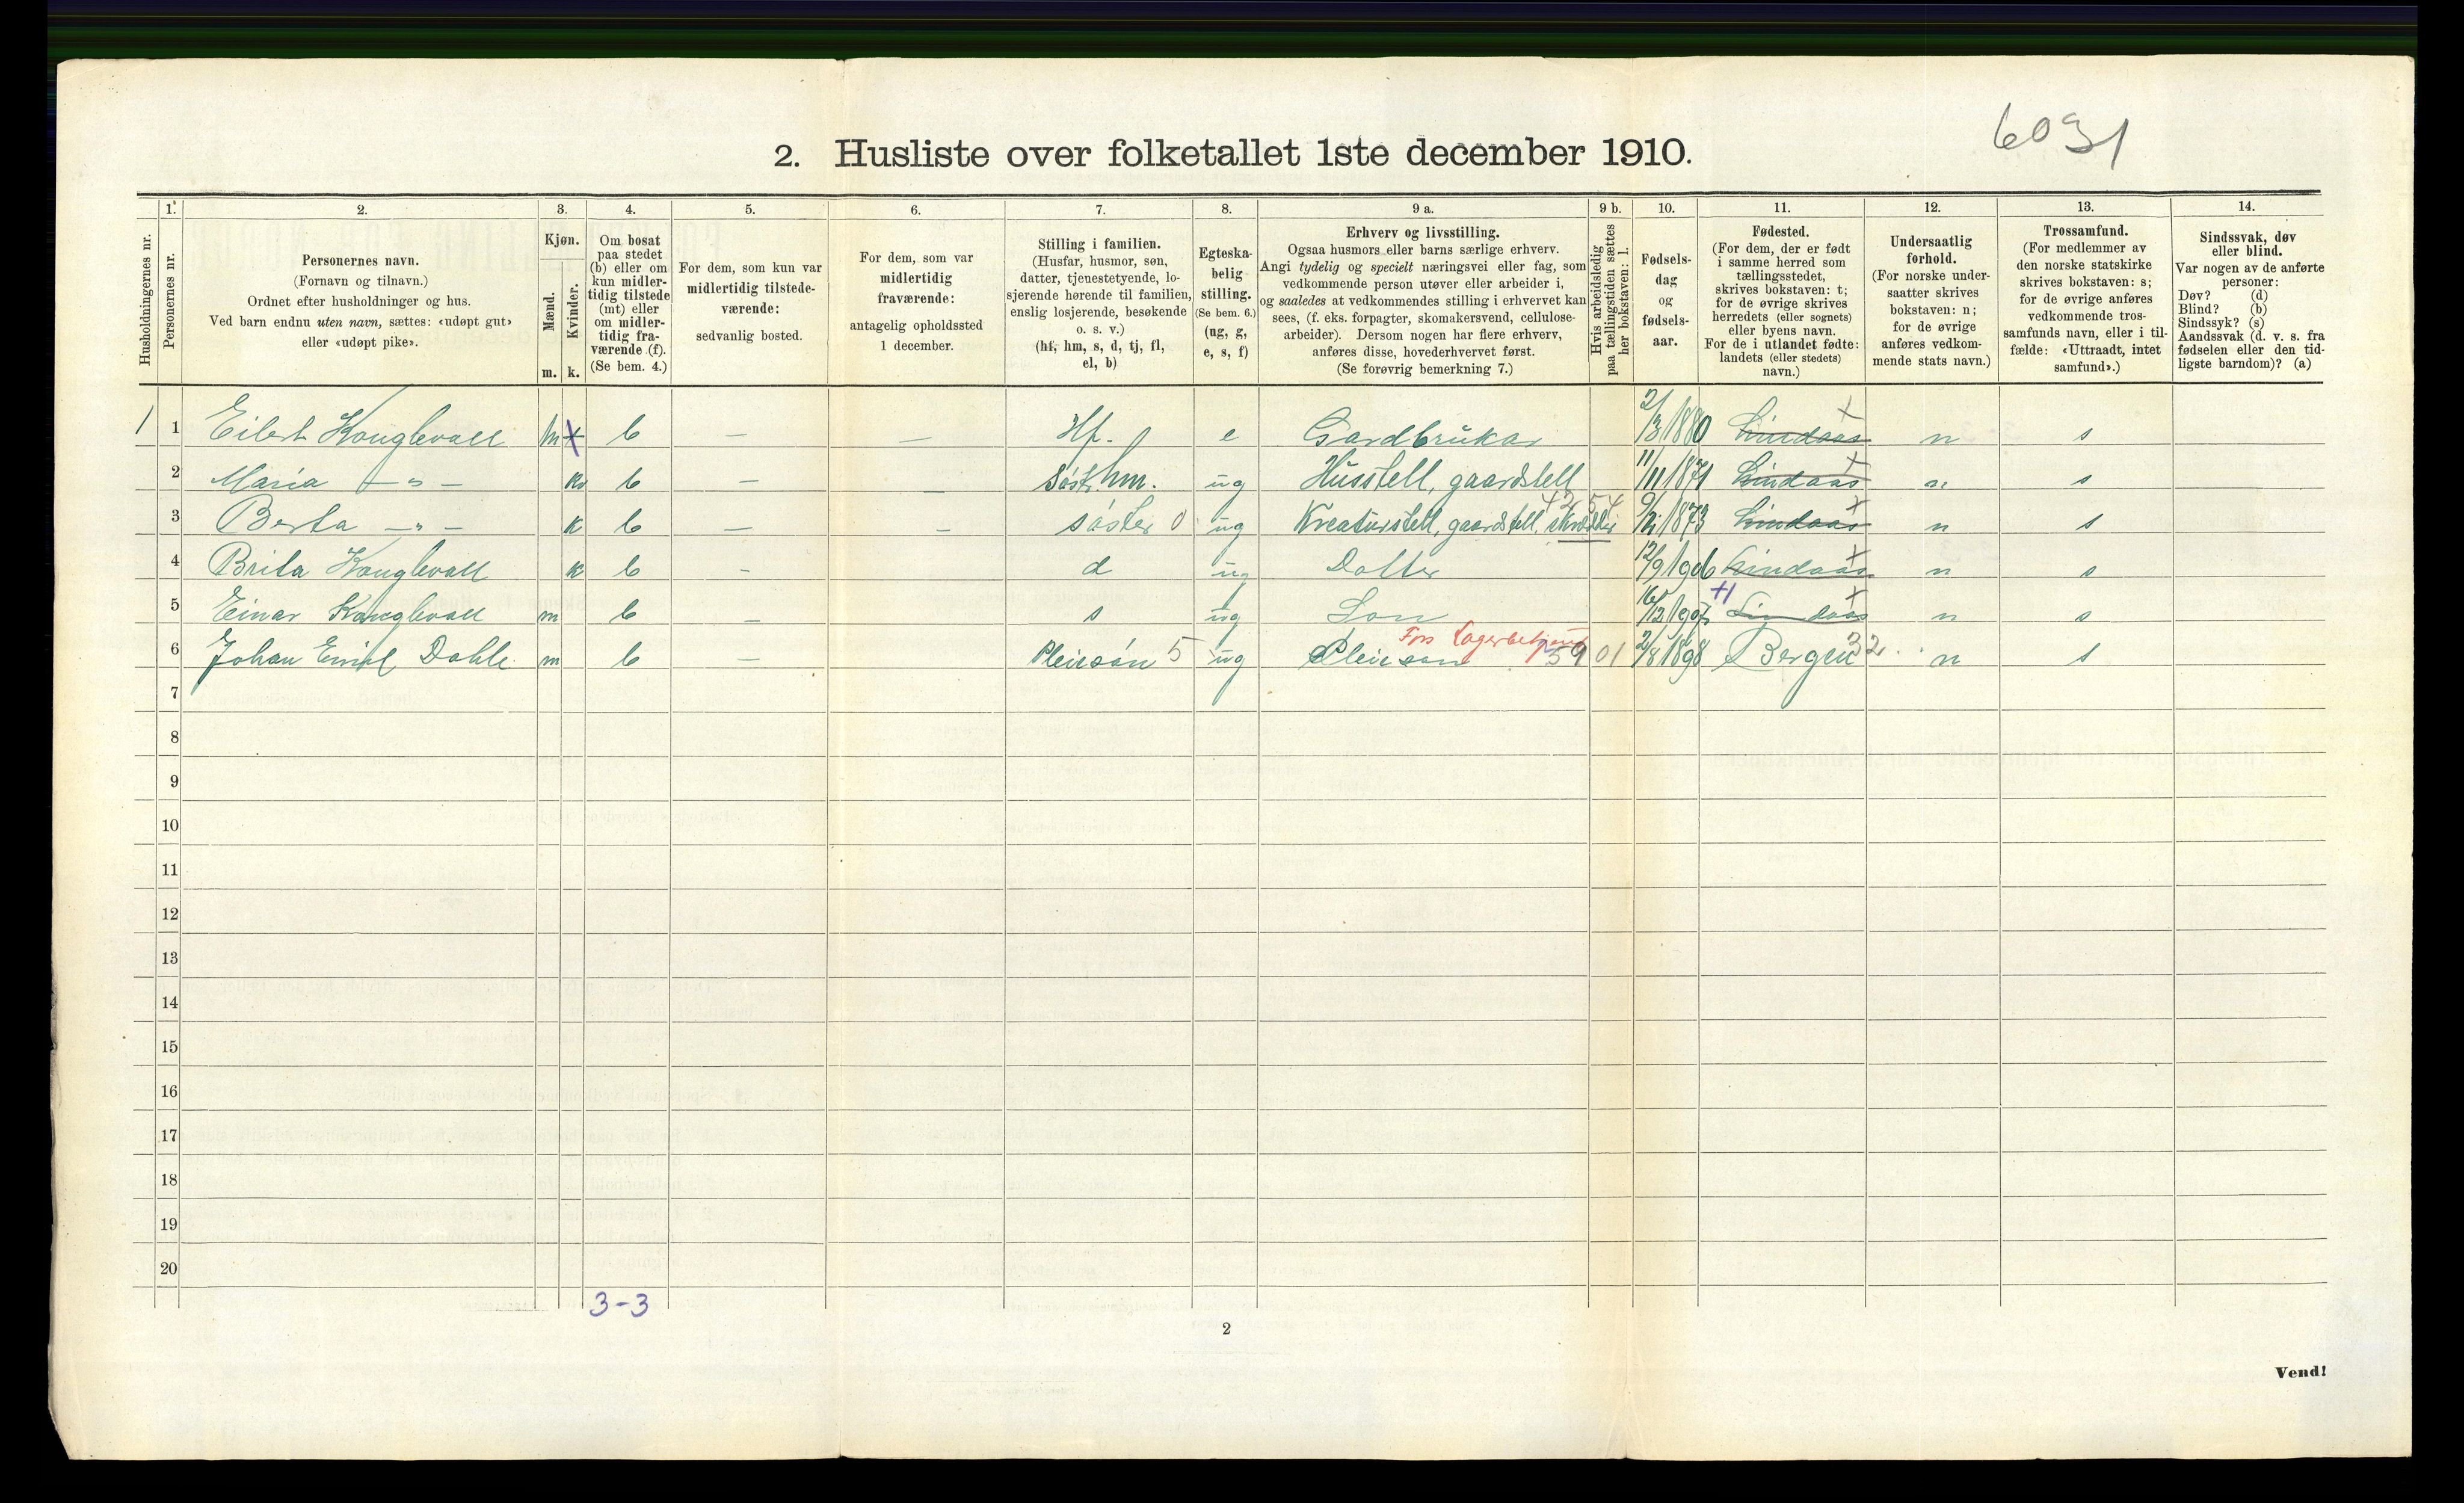 6031
2. Husliste over folketallet 1ste december 1910.
Husholdningernes nr.
1. Personernes nr.
2. Personernes navn. (Fornavn og tilnavn.) Ordnet efter husholdninger og hus. Ved barn endnu uten navn, sættes: «udøpt gut» eller «udøpt pike».
3. Kjøn. Mænd. m. Kvinder. k.
4. Om bosat paa stedet (b) eller om kun midlertidig tilstede (mt) eller om midlertidig fraværende (f). (Se bem. 4.)
5. For dem, som kun var midlertidig tilstedeværende: sedvanlig bosted.
6. For dem, som var midlertidig fraværende: antagelig opholdssted 1 december.
7. Stilling i familien. (Husfar, husmor, søn, datter, tjenestetyende, losjerende hørende til familien, enslig losjerende, besøkende o. s. v.) (hf, hm, s, d, tj, fl, el, b)
8. Egteskabelig stilling. (Se bem. 6.) (ug, g, e, s, f)
9 a. Erhverv og livsstilling. Ogsaa husmors eller barns særlige erhverv. Angi tydelig og specielt næringsvei eller fag, som vedkommende person utøver eller arbeider i, og saaledes at vedkommendes stilling i erhvervet kan sees, (f. eks. forpagter, skomakersvend, cellulosearbeider). Dersom nogen har flere erhverv, anføres disse, hovederhvervet først. (Se forøvrig bemerkning 7.)
9 b. Hvis arbeidsledig paa tællingstiden sættes her bokstaven: l.
10. Fødselsdag og fødselsaar.
11. Fødested. (For dem, der er født i samme herred som tællingsstedet, skrives bokstaven: t; for de øvrige skrives herredets (eller sognets) eller byens navn. For de i utlandet fødte: landets (eller stedets) navn.)
12. Undersaatlig forhold. (For norske undersaatter skrives bokstaven: n; for de øvrige anføres vedkommende stats navn.)
13. Trossamfund. (For medlemmer av den norske statskirke skrives bokstaven: s; for de øvrige anføres vedkommende trossamfunds navn, eller i tilfælde: «Uttraadt, intet samfund».)
14. Sindssvak, døv eller blind. Var nogen av de anførte personer: Døv? (d) Blind? (b) Sindssyk? (s) Aandssvak (d. v. s. fra fødselen eller den tidligste barndom)? (a)
1 1 Eilert Konglevoll m x b — — Hf. e Gardbrukar 2/3 1880 Lindaas x n s
2 Maria — " — k b — — søst. hm. ug Husstell, gaardstell 11/11 1871 Lindaas x n s
3 Berta — " — k b — — søster 0 ug Kreaturstell, gaardstell, 42 54 1873 Lindaas x n s
4 Brita Konglevoll k b — d ug Dotter 12/9 1906 Lindaas x n s
5 Einar Konglevoll m b — s ug Son 16/12 1907 Lindaas x n s
6 Johan Emil Dahle m b — Pleiesøn 5 ug Pleiesøn 59 01 2/8 1898 Bergen 32 n s
7
8
9
10
11
12
13
14
15
16
17
18
19
20
3-3
2
Vend!